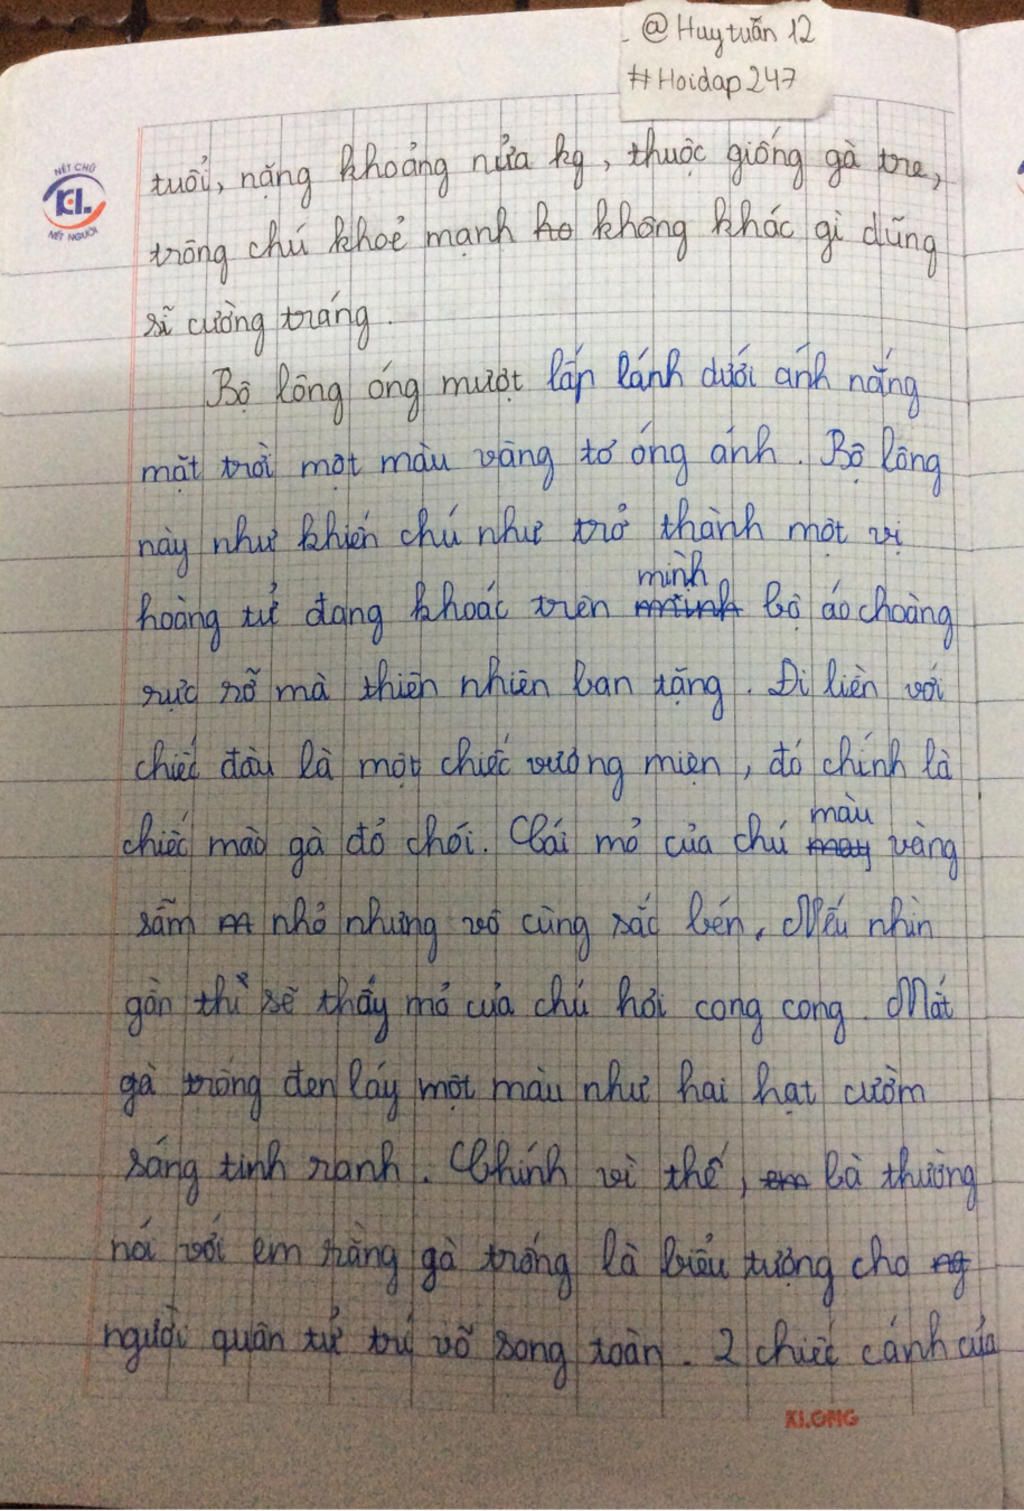 @Huytuấn 12
#Hoidap247
NÉT CHỮ
KL.
NẾT NGƯỜI
tuổi, nặng khoảng nửa kg, thuộc giống gà tre,
trông chú khoẻ mạnh ko không khác gì dũng
sĩ cường tráng.
Bộ lông óng mượt lấp lánh dưới ánh nắng
mặt trời một màu vàng tơ óng ánh. Bộ lông
này như khiến chú như trở thành một vị
mình
hoàng tử đang khoác trên mình bộ áo choàng
rực rỡ mà thiên nhiên ban tặng. Đi liền với
chiếc đầu là một chiếc vương miện, đó chính là
màu
chiếc mào gà đỏ chói. Cái mỏ của chú may vàng
sẫm m nhỏ nhưng vô cùng sắc bén. Nếu nhìn
gần thì sẽ thấy mỏ của chú hơi cong cong. Mắt
gà trống đen láy một màu như hai hạt cườm
sáng tinh ranh. Chính vì thế, em bà thường
nói với em rằng gà trống là biểu tượng cho ng
người quân tử trí võ song toàn. 2 chiếc cánh của
KLONG